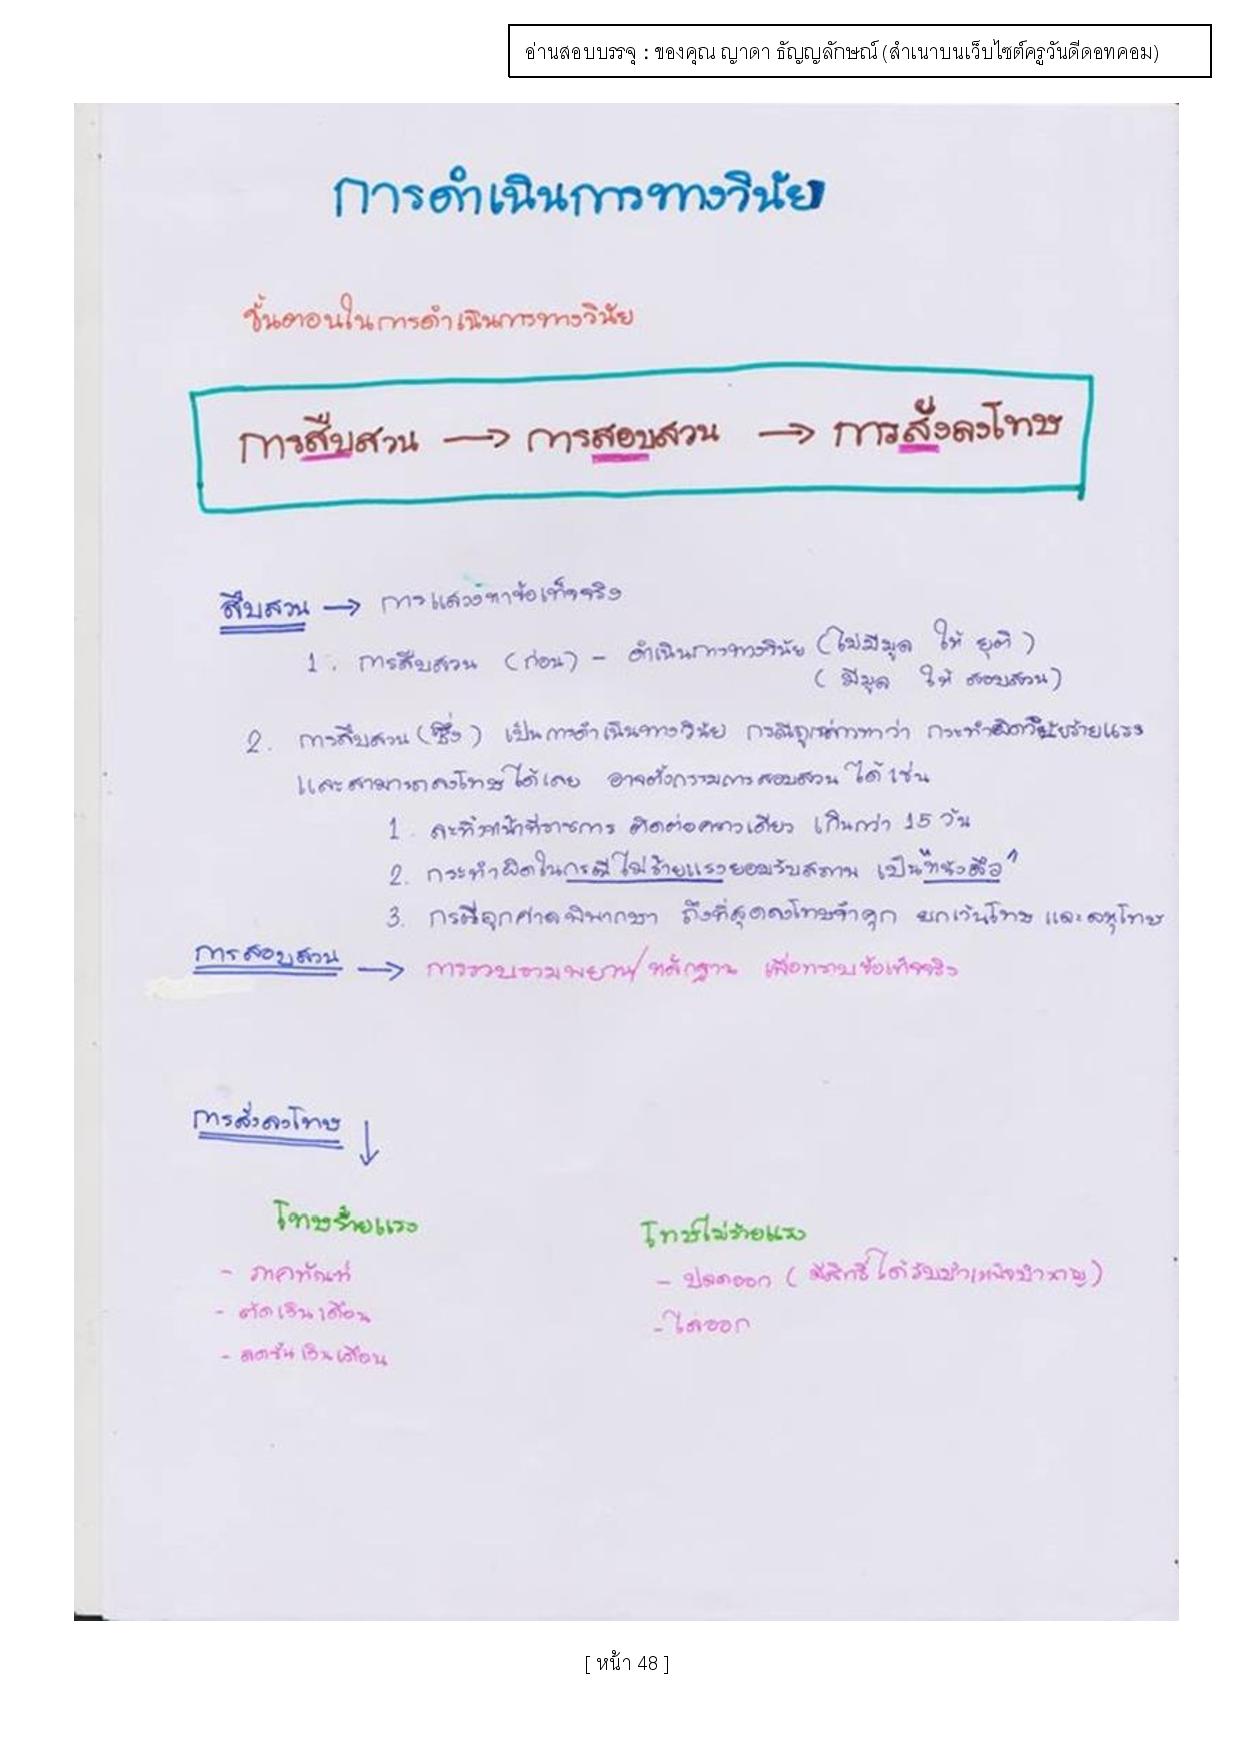 อ่านสอบบรรจุ : ของคุณ ญาดา ธัญญลักษณ์ (สำเนาบนเว็บไซต์ครูวันดีดอทคอม)
การดำเนินการทางวินัย
ขั้นตอนในการดำเนินการทางวินัย
การสืบสวน → การสอบสวน → การสั่งลงโทษ
สืบสวน → การแสวงหาข้อเท็จจริง
1. การสืบสวน (ก่อน) - ดำเนินการทางวินัย (ไม่มีมูล ให้ ยุติ)
(มีมูล ให้ สอบสวน)
2. การสืบสวน (ซึ่ง) เป็นการดำเนินทางวินัย กรณีถูกกล่าวหาว่า กระทำผิดวินัยร้ายแรง
และสามารถลงโทษได้เลย อาจตั้งกรรมการสอบสวนได้ เช่น
1. ละทิ้งหน้าที่ราชการ ติดต่อคราวเดียว เกินกว่า 15 วัน
2. กระทำผิดในกรณีไม่ร้ายแรงยอมรับสภาพ เป็น "หนังสือ"
3. กรณีถูกศาลพิพากษา ถึงที่สุดลงโทษจำคุก ยกเว้นโทษ และลหุโทษ
การสอบสวน → การรวบรวมพยาน/หลักฐาน เพื่อทราบข้อเท็จจริง
การสั่งลงโทษ ↓
โทษร้ายแรง
- ภาคทัณฑ์
- ตัดเงินเดือน
- ลดขั้นเงินเดือน
โทษไม่ร้ายแรง
- ปลดออก (มีสิทธิ์ได้รับบำเหน็จบำนาญ)
- ไล่ออก
[ หน้า 48 ]